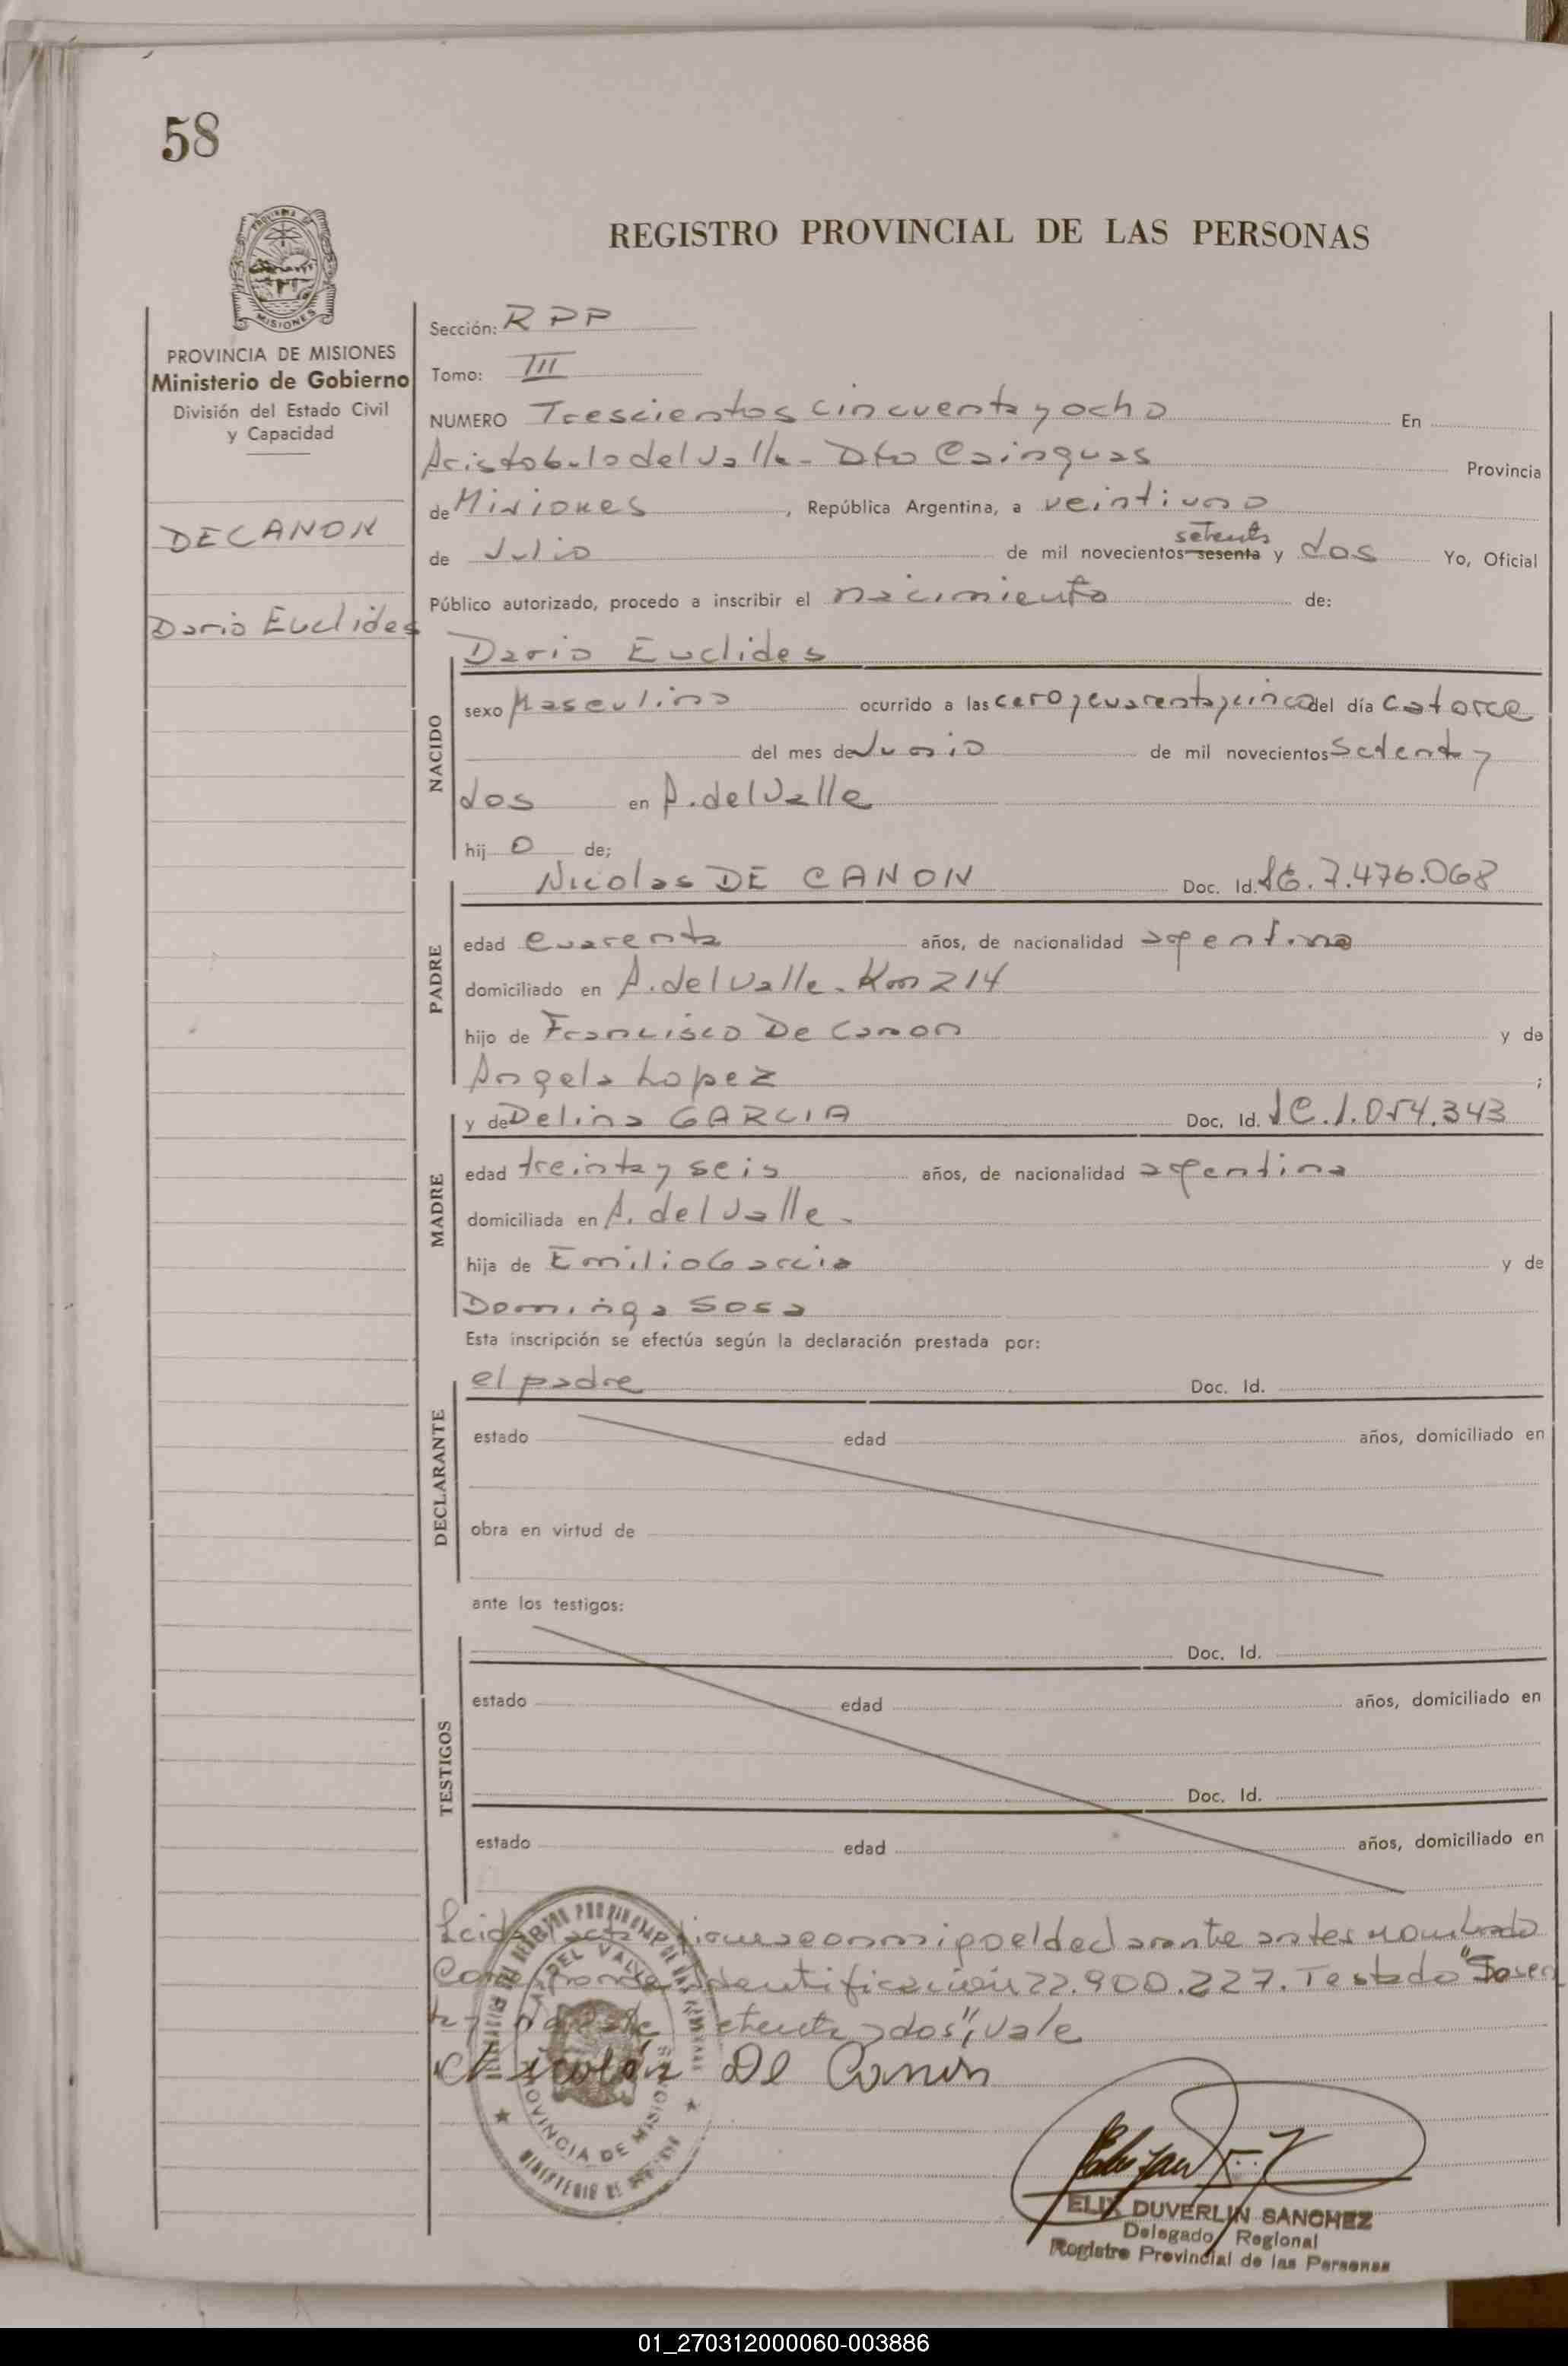 58
REGISTRO PROVINCIAL DE LAS PERSONAS
MISIONES
PROVINCIA DE MISIONES
Ministerio de Gobierno
División del Estado Civil
y Capacidad
DECANON
Dario Euclides
Sección: RPP
Tomo: III
NUMERO Trescientos cincuenta y ocho En
Aristobulo del Valle - Dto Cainguas Provincia
de Misiones, República Argentina, a veintiuno
setenta
de Julio de mil novecientos sesenta y dos Yo, Oficial
Público autorizado, procedo a inscribir el nacimiento de:
NACIDO
Dario Euclides
sexo Masculino ocurrido a las cero y cuarenta y cinco del día catorce
del mes de Junio de mil novecientos setenta y
dos en A. del Valle
hijo de;
PADRE
Nicolas DE CANON Doc. Id. 7.476.068
edad cuarenta años, de nacionalidad argentina
domiciliado en A. del Valle - Km 214
hijo de Francisco De Canon y de
Angela Lopez ;
MADRE
y de Delina GARCIA Doc. Id. 1.054.343
edad treinta y seis años, de nacionalidad argentina
domiciliada en A. del Valle -
hija de Emilio Garcia y de
Dominga Sosa
Esta inscripción se efectúa según la declaración prestada por:
DECLARANTE
el padre Doc. Id.
estado edad años, domiciliado en
obra en virtud de
ante los testigos:
TESTIGOS
Doc. Id.
estado edad años, domiciliado en
Doc. Id.
estado edad años, domiciliado en
Leida acta conmigo el declarante antes nombrado
identificación 22.900.227. Testado
y dos", vale
Nicolás De Canon
DEL VALLE
PROVINCIA DE MISIONES
MINISTERIO DE
ELIX DUVERLIN SANCHEZ
Delegado Regional
Registro Provincial de las Personas
01_270312000060-003886